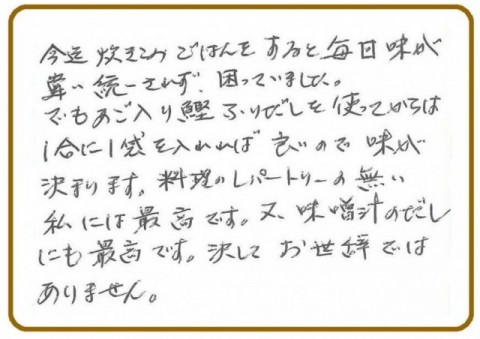 今迄 炊きこみ ごはんを すると 毎日 味が
違い 統一されず、困っていました。
でもあご入り鰹ふりだしを使ってからは
1合に1袋を入れれば 良いので 味が
決まります。料理のレパートリーの無い
私には最高です。又、味噌汁のだし
にも最高です。決して お世辞では
ありません。